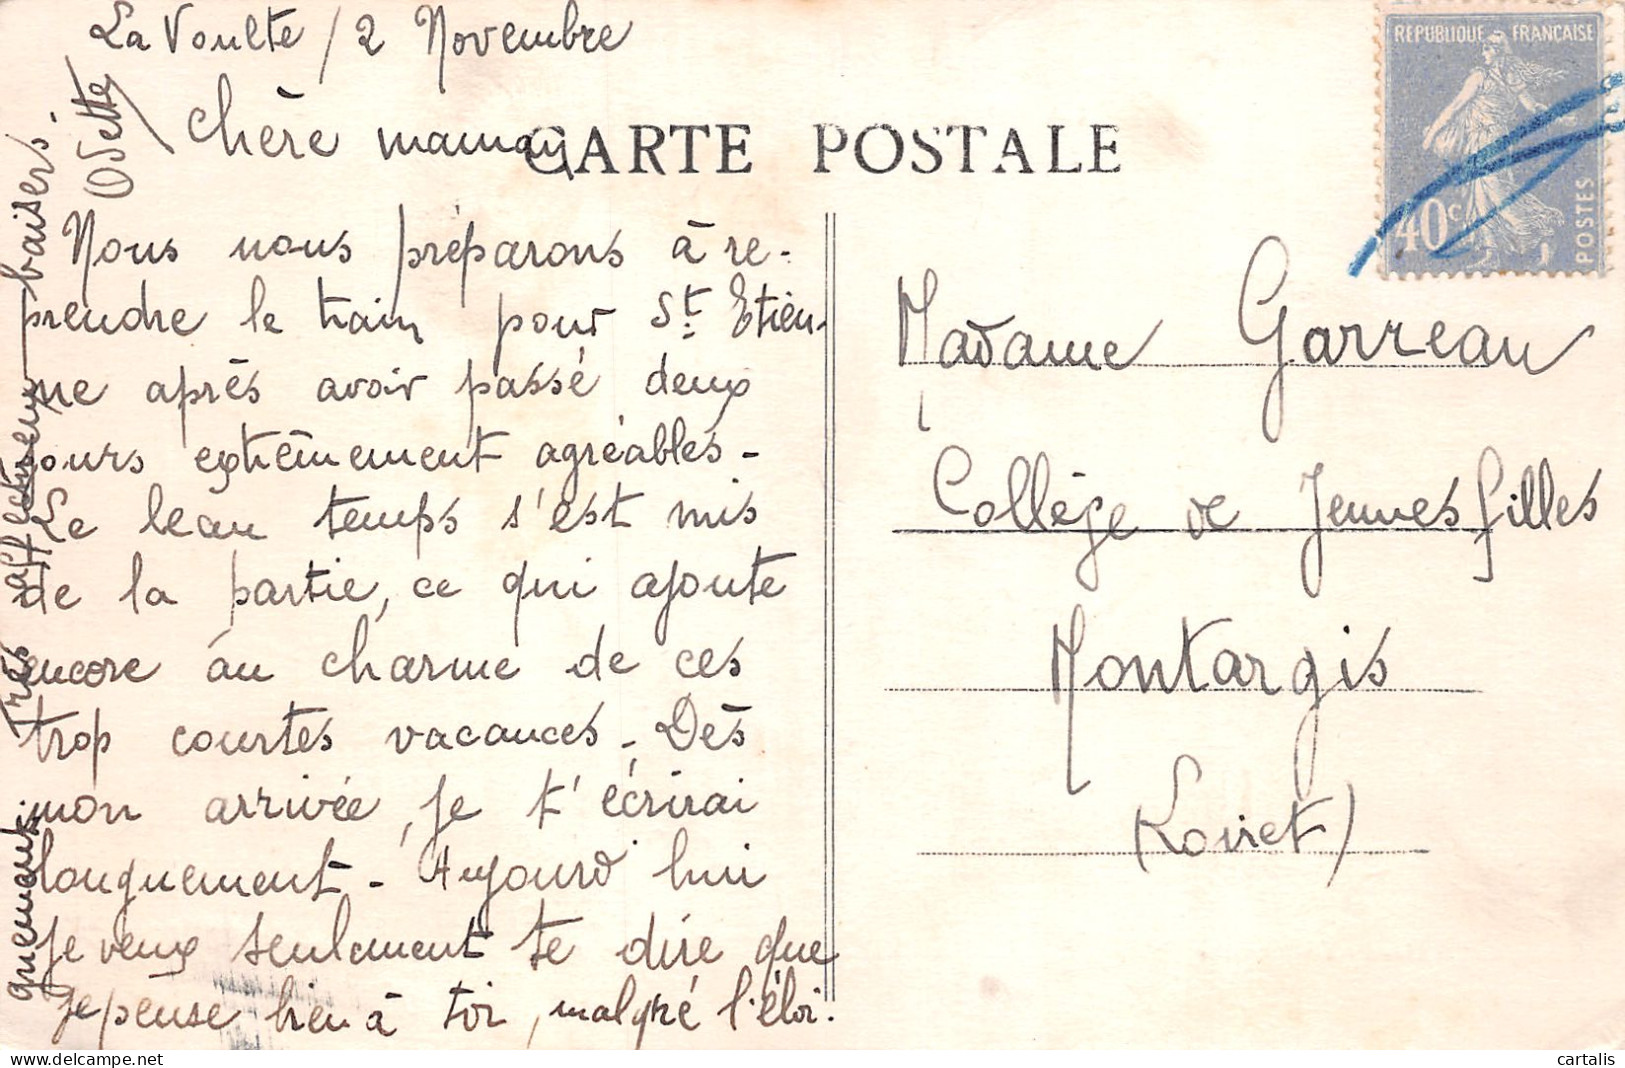 La Voulte / 2 Novembre
Chère maman
CARTE POSTALE
REPUBLIQUE FRANÇAISE
40c
POSTES
Nous nous préparons à re-
prendre le train pour St. Etien-
ne après avoir passé deux
jours extrêmement agréables -
Le beau temps s'est mis
de la partie, ce qui ajoute
encore au charme de ces
trop courtes vacances - Dès
mon arrivée, je t'écrirai
longuement - Aujourd'hui
je veux seulement te dire que
je pense bien à toi, malgré l'éloi-
gnement. Très affectueux baisers.
Odette
Madame Garreau
Collège de Jeunes filles
Montargis
(Loiret)
cartalis